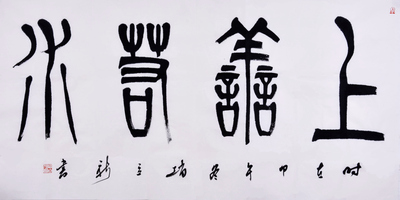 上善若水
时在甲午冬立新书